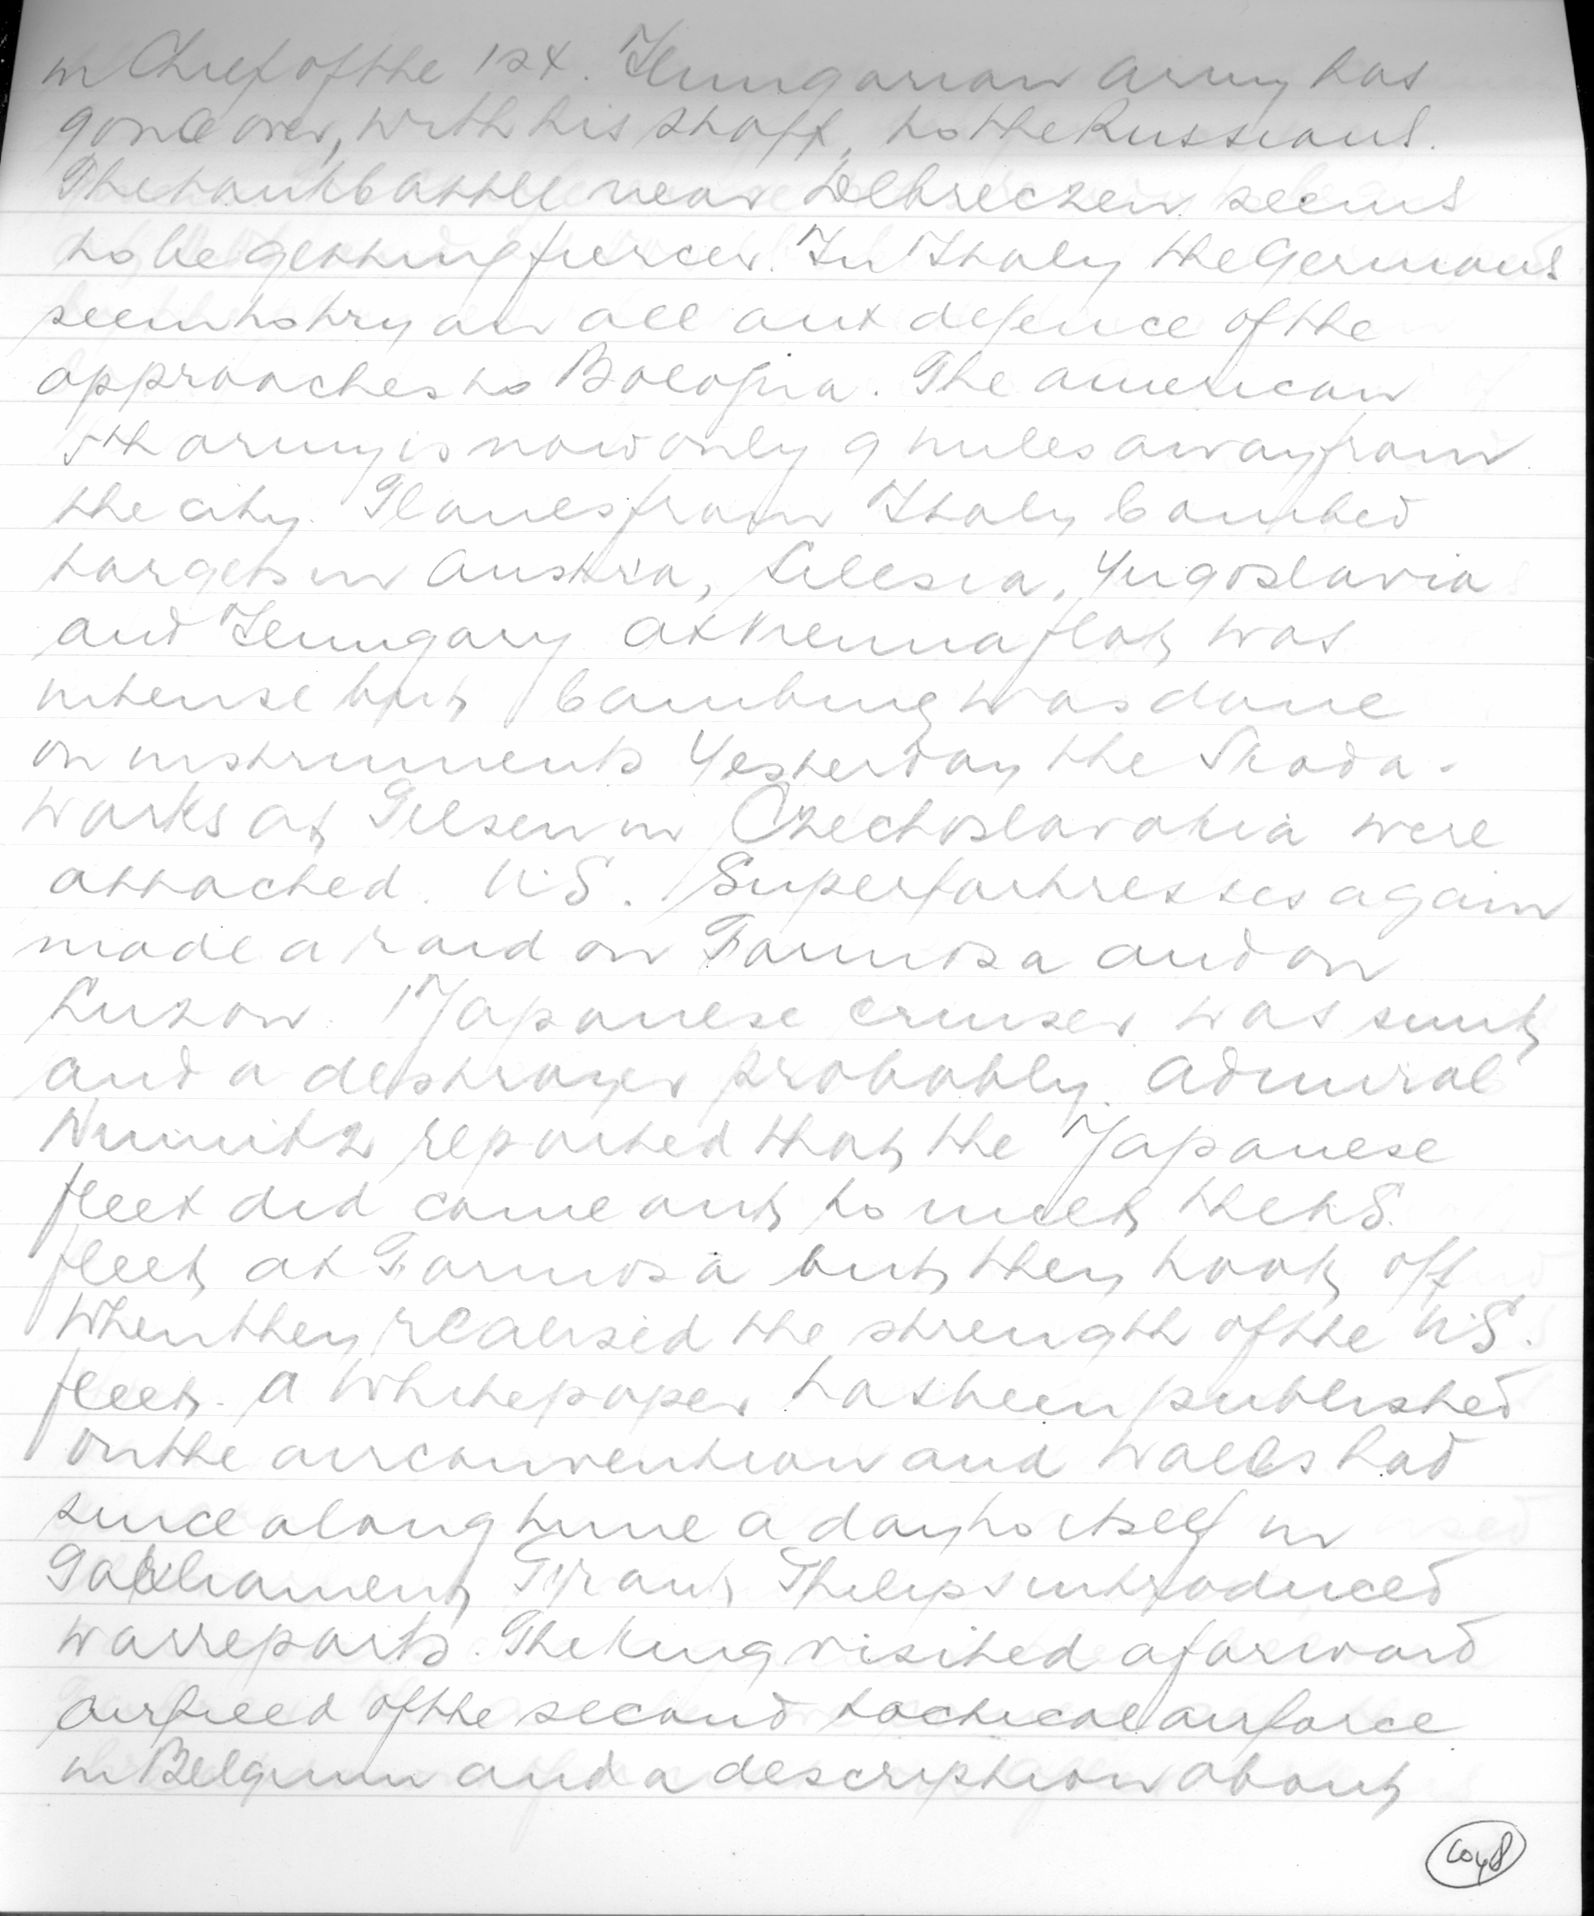 in Chief of the 1st. Hungarian army has
gone over, with his staff, to the Russians.
The tankbattle near Debreczen seems
to be getting fiercer. In Italy the Germans
seem to try an all out defence of the
approaches to Bologna. The american
5th army is now only 9 miles away from
the city. Planes from Italy bombed
targets in Austria, Silesia, Yugoslavia
and Hungary. At Vienna flak was
intense but bombing was done
on instruments. Yesterday the Skoda-
works at Pilsen in Czechoslovakia were
attacked. U.S. Superfortresses again
made a raid on Formosa and on
Luzon. 1 Japanese cruiser was sunk
and a destroyer probably. Admiral
Nimitz reported that the Japanese
fleet did come out to meet the U.S.
fleet at Formosa but they took off
when they realised the strength of the U.S.
fleet. A Whitepaper has been published
on the airconvention and Wales had
since a long time a day to itself in
Parliament. Frank Philips introduced
warreports. The King visited a forward
airfield of the second tactical airforce
in Belgium and a description about